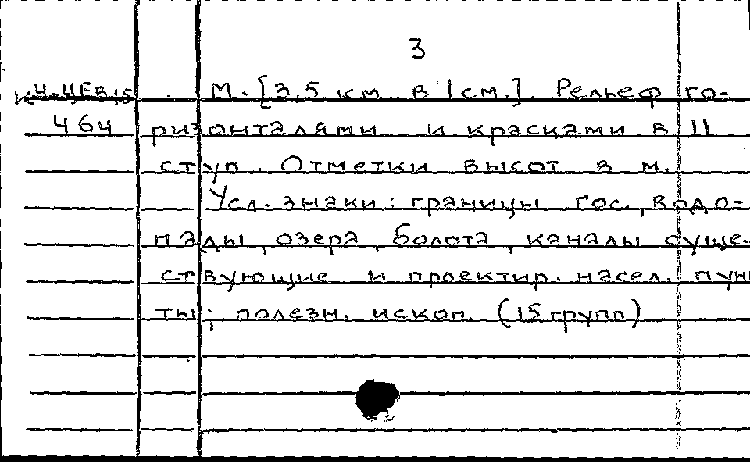 3
М. [3,5 км в 1 см.] Рельеф го-
464 ризонталями и красками в 11
ступ. Отметки высот в м.
Усл. знаки: границы гос., водо-
пады, озера, болота, каналы суще-
ствующие и проектир. насел. пунк
ты; полезн. ископ. (15 групп)